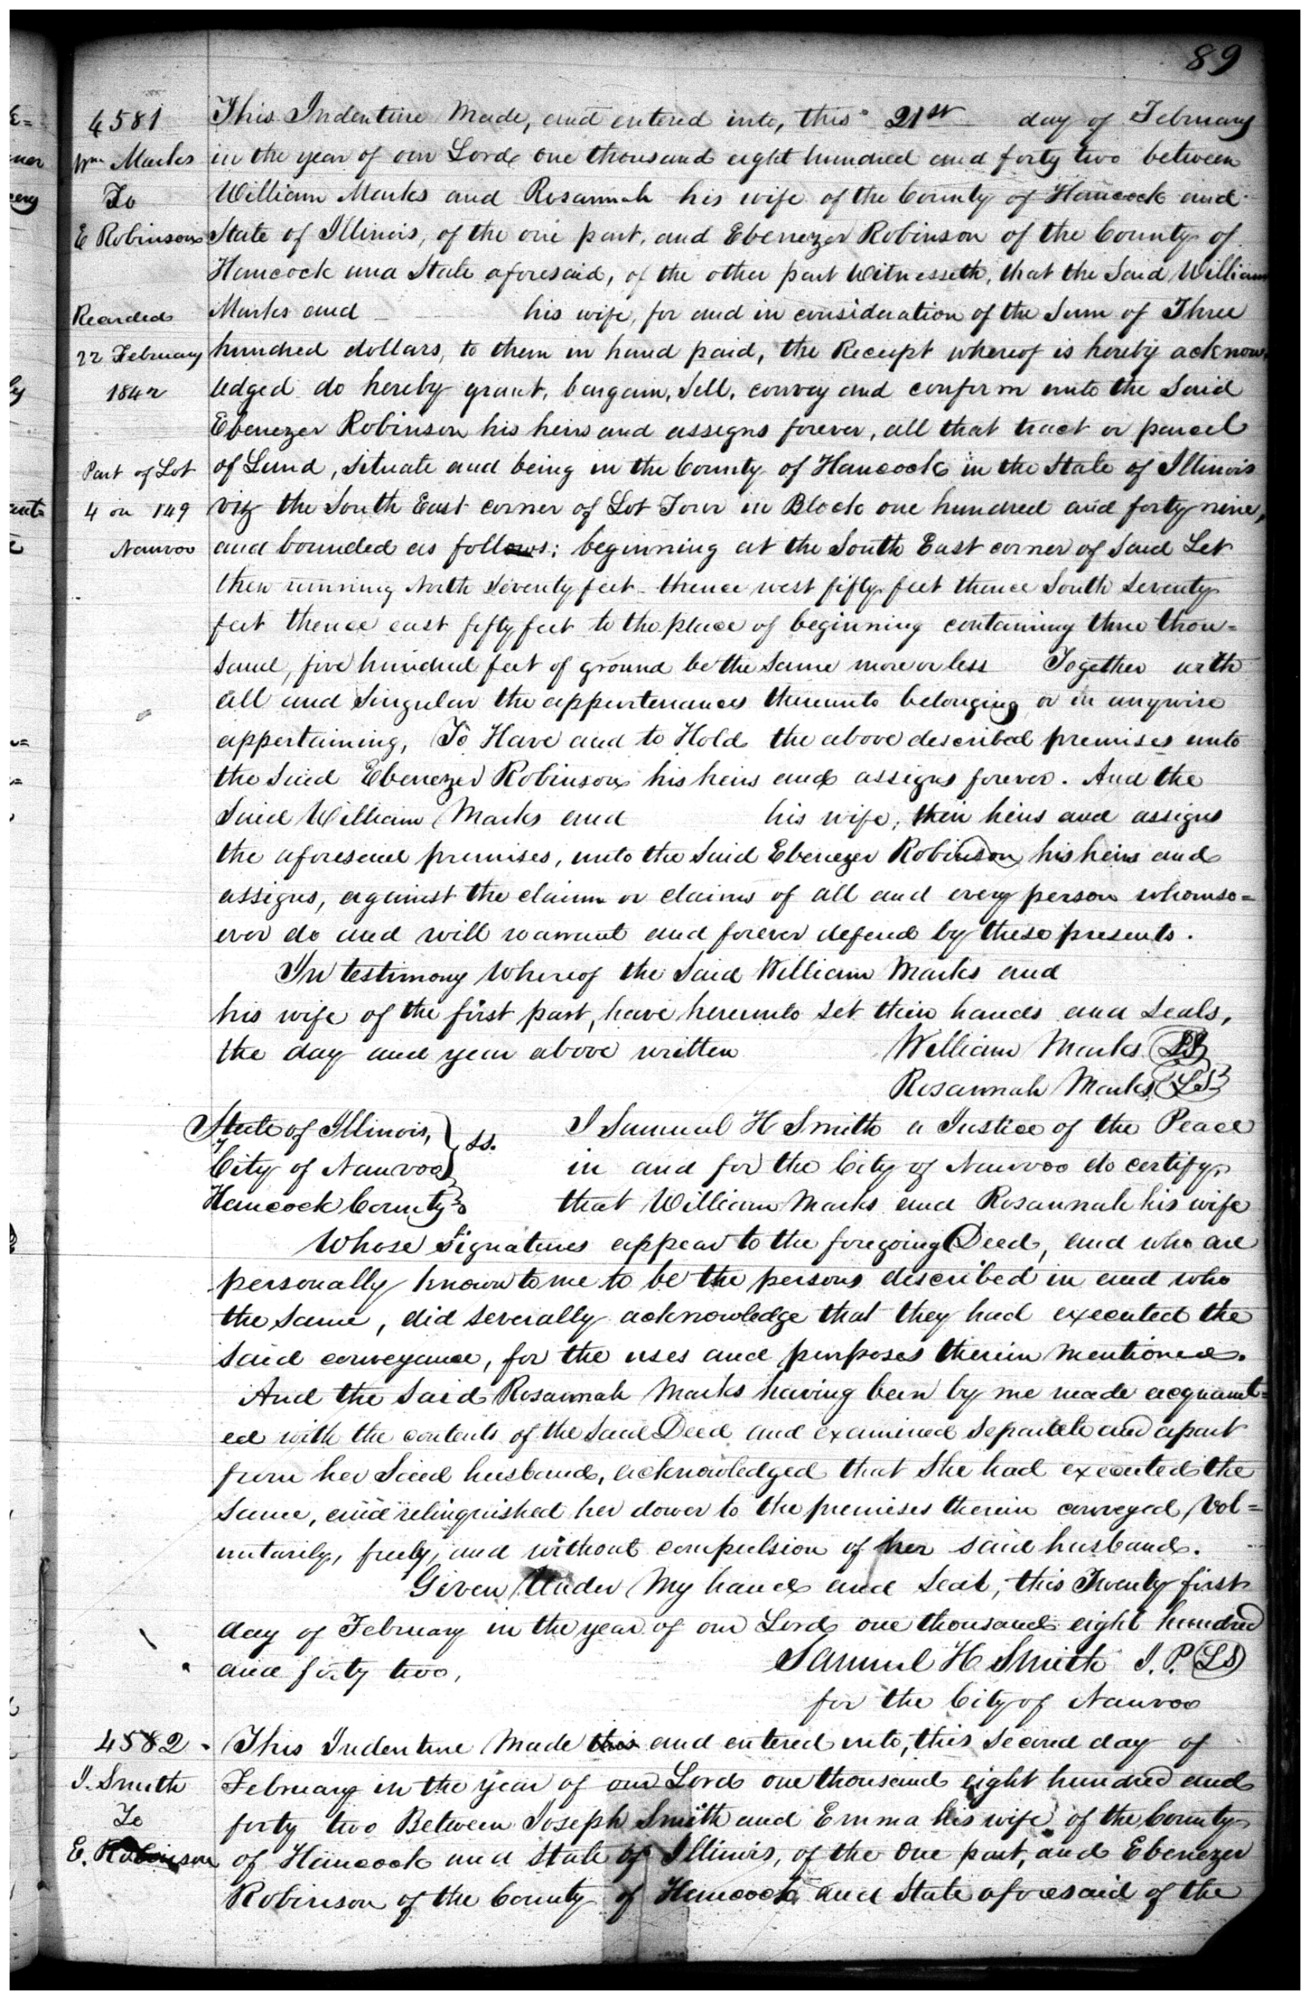 89
4581
Wm Marks
To
E Robinson
Recorded
22 February
1842
Part of Lot
4 in 149
Nauvoo
This Indenture Made, and entered into, this 21st day of February
in the year of our Lord one thousand eight hundred and forty two between
William Marks and Rosannah his wife of the County of Hancock and
State of Illinois, of the one part, and Ebenezer Robinson of the County of
Hancock and State aforesaid, of the other part Witnesseth, that the Said William
Marks and his wife, for and in consideration of the Sum of Three
hundred dollars, to them in hand paid, the Receipt whereof is hereby acknow-
ledged do hereby grant, bargain, Sell, convey and confirm unto the Said
Ebenezer Robinson his heirs and assigns forever, all that tract or parcel
of Land, Situate and being in the County of Hancock in the State of Illinois
viz the South East corner of Lot Four in Block one hundred and forty nine,
and bounded as follows; beginning at the South East corner of Said Lot
then running North Seventy feet thence west fifty feet thence South Seventy
feet thence east fifty feet to the place of beginning containing three thou=
sand, five hundred feet of ground be the Same more or less Together with
all and Singular the appurtenances thereunto belonging or in anywise
appertaining, To Have and to Hold the above described premises unto
the Said Ebenezer Robinson his heirs and assigns forever. And the
Said William Marks and his wife, their heirs and assigns
the aforesaid premises, unto the Said Ebenezer Robinson his heirs and
assigns, against the claim or claims of all and every person whomso=
ever do and will warrant and forever defend by these presents.
In testimony Whereof the Said William Marks and
his wife of the first part, have hereunto Set their hands and Seals,
the day and year above written William Marks LS
Rosannah Marks LS
State of Illinois,
City of Nauvoo } ss.
Hancock County
I Samuel H Smith a Justice of the Peace
in and for the City of Nauvoo do certify,
that William Marks and Rosannah his wife
Whose Signatures appear to the foregoing Deed, and who are
personally known to me to be the persons described in and who
the Same, did severally acknowledge that they had executed the
Said conveyance, for the uses and purposes therein Mentioned.
And the Said Rosannah Marks having been by me made acquaint=
ed with the contents of the Said Deed and examined Separate and apart
from her Said husband, acknowledged that She had executed the
Same, and relinquished her dower to the premises therein conveyed, Vol=
untarily, freely, and without compulsion of her said husband.
Given Under My hand and Seal, this Twenty first
day of February in the year of our Lord one thousand eight hundred
and forty two, Samuel H Smith J. P. LS
for the City of Nauvoo
4582
J. Smith
To
E. Robinson
This Indenture Made this and entered into, this Second day of
February in the year of our Lord one thousand eight hundred and
forty two Between Joseph Smith and Emma his wife of the County
of Hancock and State of Illinois, of the One part, and Ebenezer
Robinson of the County of Hancock and State aforesaid of the